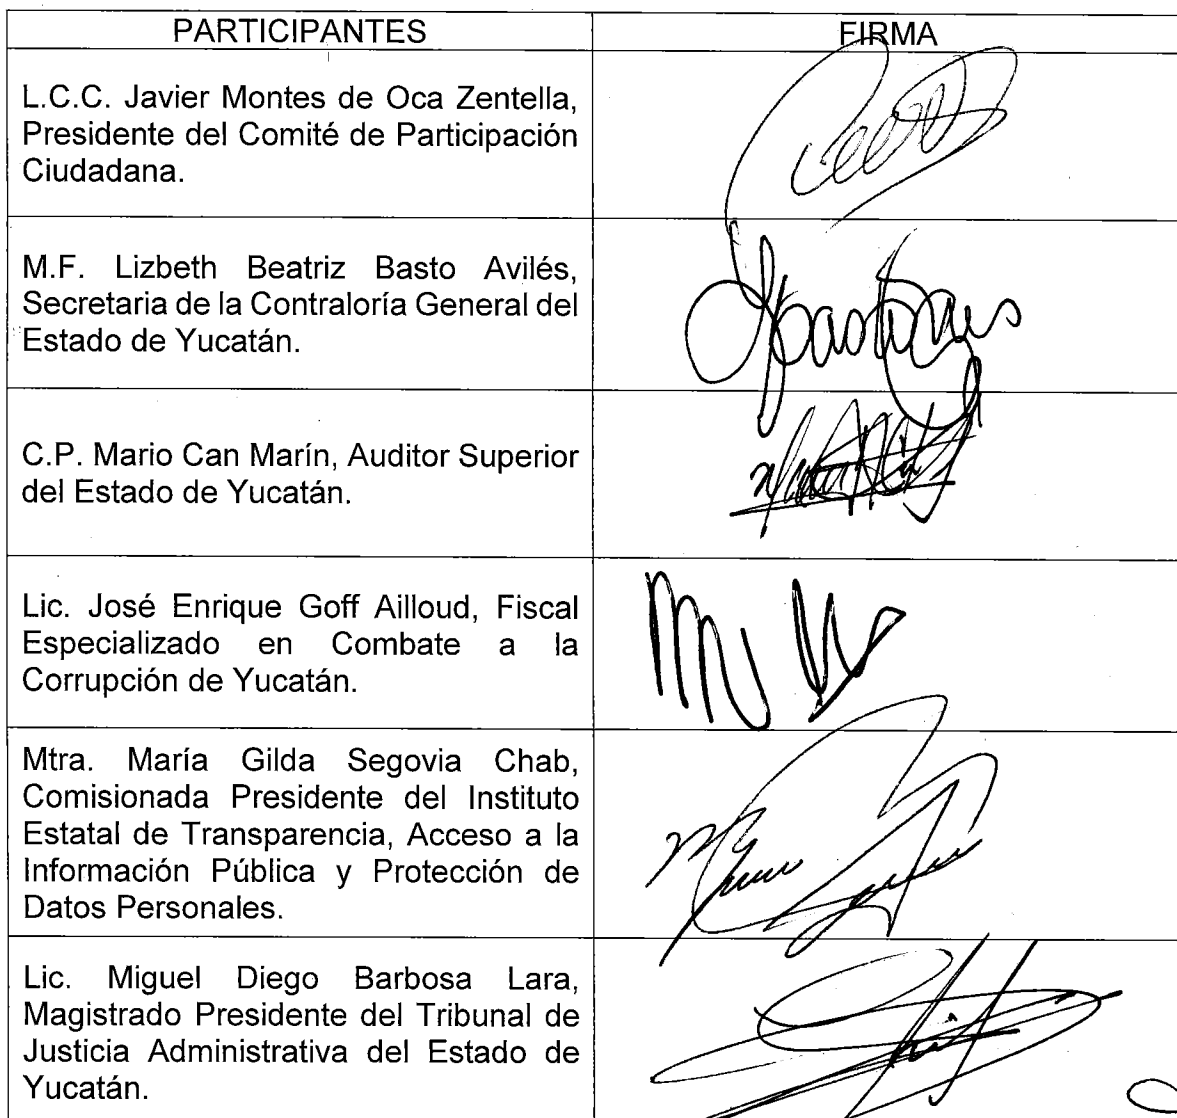 PARTICIPANTES
FIRMA
L.C.C. Javier Montes de Oca Zentella,
Presidente del Comité de Participación
Ciudadana.
M.F. Lizbeth Beatriz Basto Avilés,
Secretaria de la Contraloría General del
Estado de Yucatán.
C.P. Mario Can Marín, Auditor Superior
del Estado de Yucatán.
Lic. José Enrique Goff Ailloud, Fiscal
Especializado en Combate a la
Corrupción de Yucatán.
Mtra. María Gilda Segovia Chab,
Comisionada Presidente del Instituto
Estatal de Transparencia, Acceso a la
Información Pública y Protección de
Datos Personales.
Lic. Miguel Diego Barbosa Lara,
Magistrado Presidente del Tribunal de
Justicia Administrativa del Estado de
Yucatán.